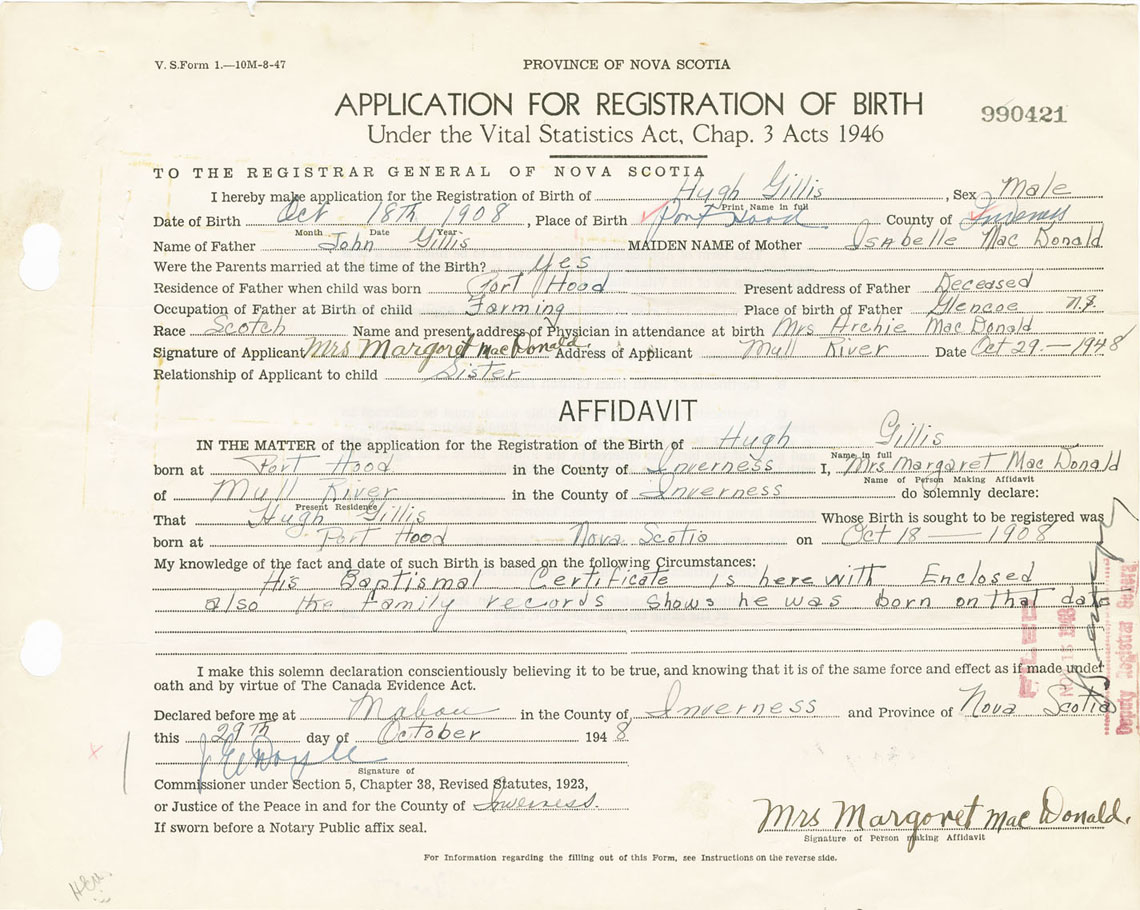 V. S.Form 1.—10M-8-47
PROVINCE OF NOVA SCOTIA
APPLICATION FOR REGISTRATION OF BIRTH
990421
Under the Vital Statistics Act, Chap. 3 Acts 1946
TO THE REGISTRAR GENERAL OF NOVA SCOTIA
I hereby make application for the Registration of Birth of Hugh Gillis, Sex Male
Print Name in full
Date of Birth Oct 18th 1908, Place of Birth Port Hood County of Inverness
Month Date Year
Name of Father John Gillis MAIDEN NAME of Mother Isabelle Mac Donald
Were the Parents married at the time of the Birth? Yes
Residence of Father when child was born Port Hood Present address of Father Deceased
Occupation of Father at Birth of child Farming Place of birth of Father Glencoe N.S.
Race Scotch Name and present address of Physician in attendance at birth Mrs Archie Mac Donald
Signature of Applicant Mrs Margoret Mac Donald. Address of Applicant Mull River Date Oct 29.—1948
Relationship of Applicant to child Sister
AFFIDAVIT
IN THE MATTER of the application for the Registration of the Birth of Hugh Gillis
Name in full
born at Port Hood in the County of Inverness I, Mrs Margaret Mac Donald
Name of Person Making Affidavit
of Mull River in the County of Inverness do solemnly declare:
Present Residence
That Hugh Gillis Whose Birth is sought to be registered was
born at Port Hood Nova Scotia on Oct 18 — 1908
My knowledge of the fact and date of such Birth is based on the following Circumstances:
His Baptismal Certificate is here with Enclosed
also the family records shows he was born on that date
I make this solemn declaration conscientiously believing it to be true, and knowing that it is of the same force and effect as if made under
oath and by virtue of The Canada Evidence Act.
Declared before me at Mabou in the County of Inverness and Province of Nova Scotia
this 29th day of October 1948
Signature of
Commissioner under Section 5, Chapter 38, Revised Statutes, 1923,
or Justice of the Peace in and for the County of Inverness.
If sworn before a Notary Public affix seal.
Mrs Margoret Mac Donald.
Signature of Person making Affidavit
For Information regarding the filling out of this Form, see Instructions on the reverse side.
FILED
Deputy Registrar General